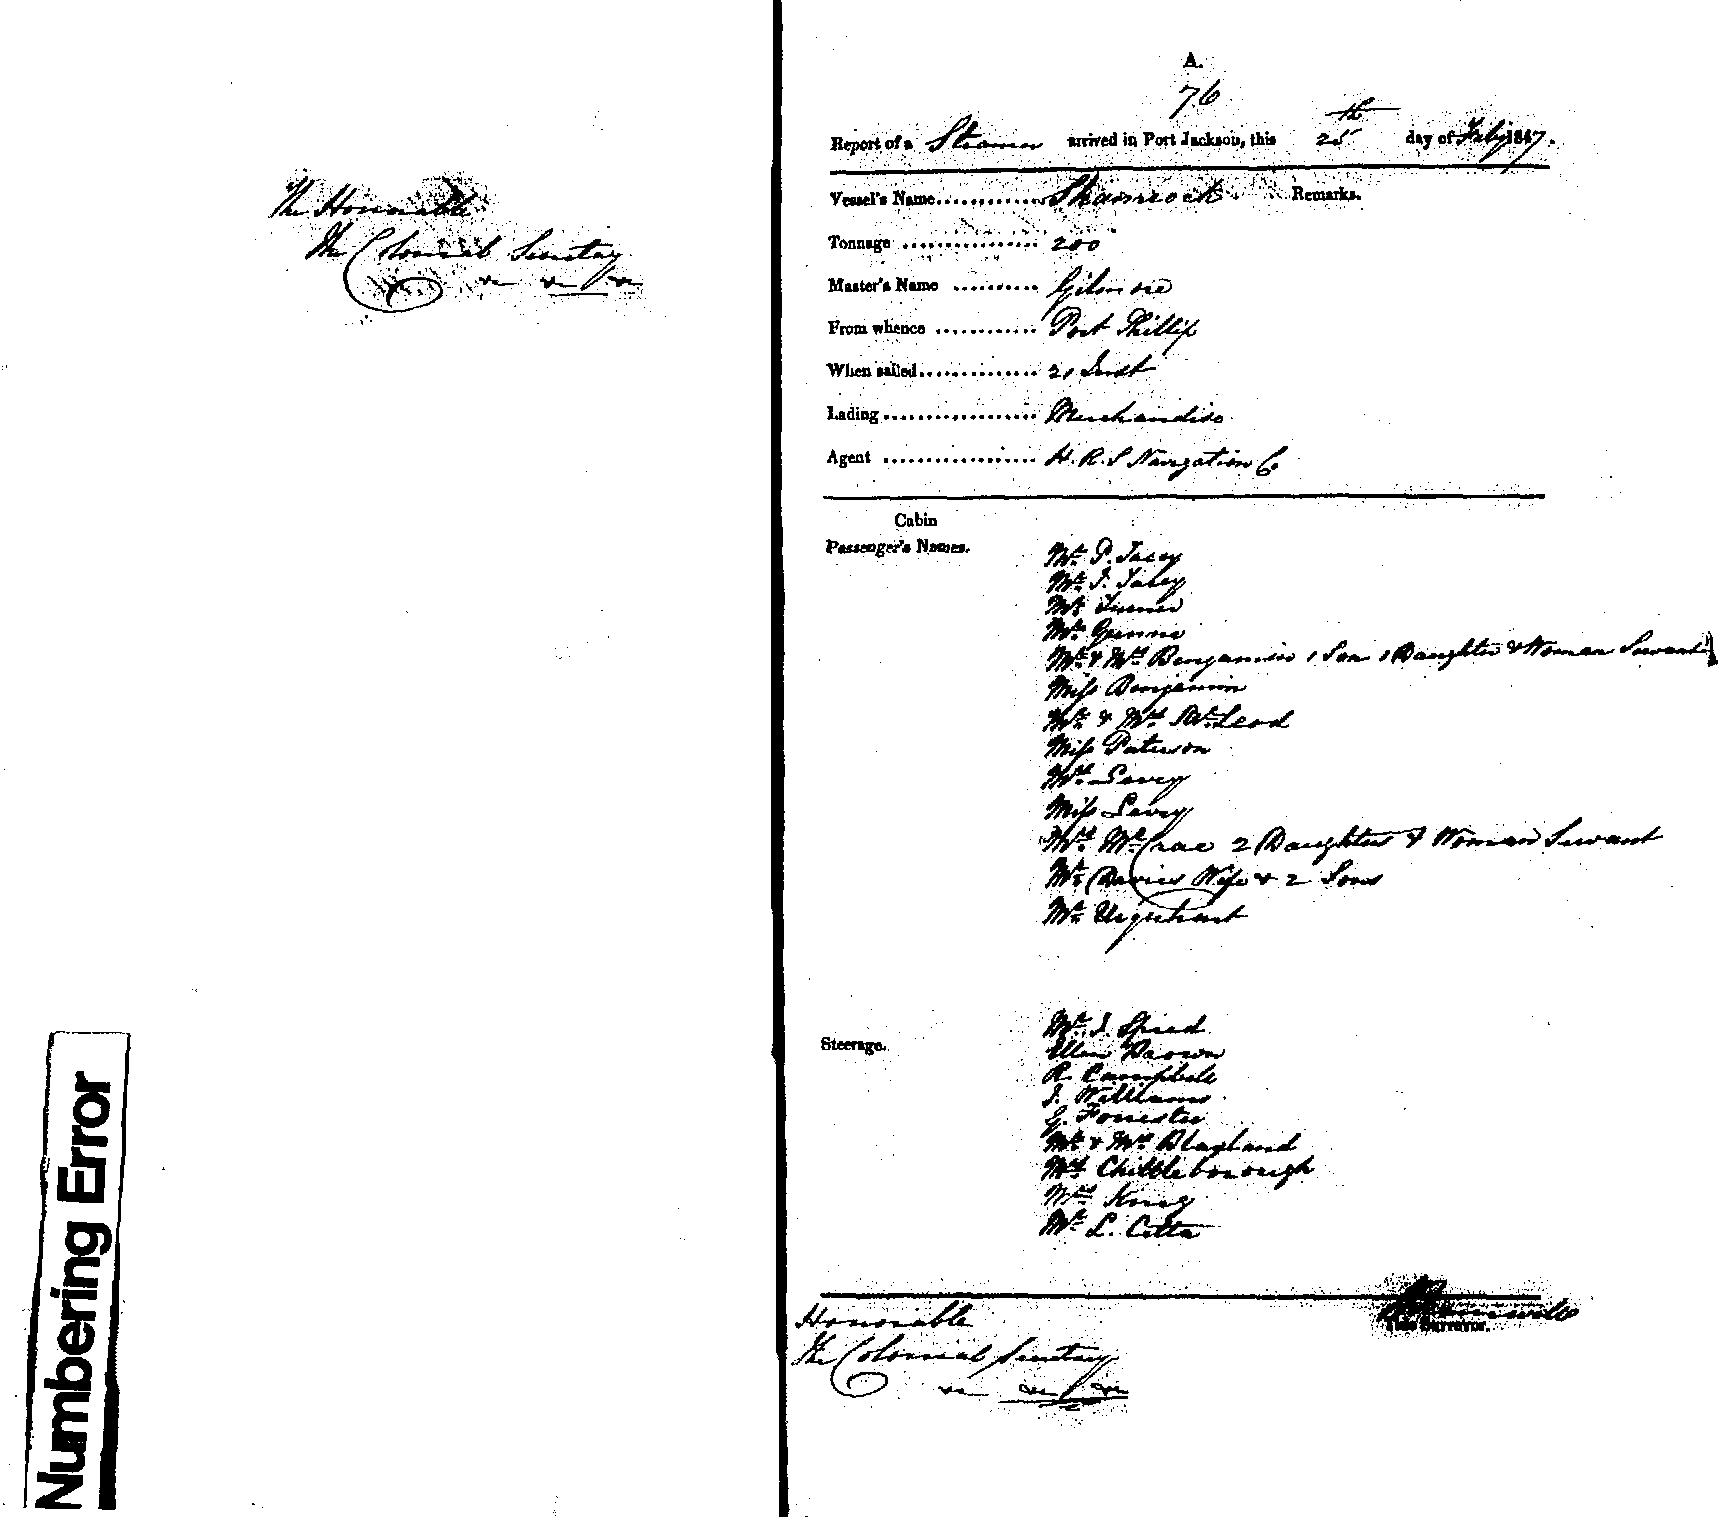 The Honorable
The Colonial Secretary
&c &c &c
Numbering Error
A.
76
Report of a Steamer arrived in Port Jackson, this 25th day of Feby 1847.
Vessel's Name Shamrock Remarks.
Tonnage 200
Master's Name Gilmore
From whence Port Phillip
When sailed 21 Inst
Lading Merchandise
Agent H. R. S Navigation Co
Cabin
Passenger's Names.
Mr. P.
Mr. J.
Mr Turner
Mr. Gunn
Mr. & Mrs Benjamin 1 Son 1 Daughter & Woman Servant
Miss Benjamin
Mr. & Mrs McLeod
Miss Paterson
Levey
Miss Levey
Mrs McCrae 2 Daughters & Woman Servant
Mr Davies Wife & 2 Sons
Mr Urquhart
Steerage.
Mr. J. Speed
Ellen Brown
R. Campbell
J. Williams
G. Forrester
Mr & Mrs Blagland
Mrs Chittleborough
Mrs
Mr L. Cetta
Honorable
The Colonial Secretary
&c &c &c
Tide Surveyor.